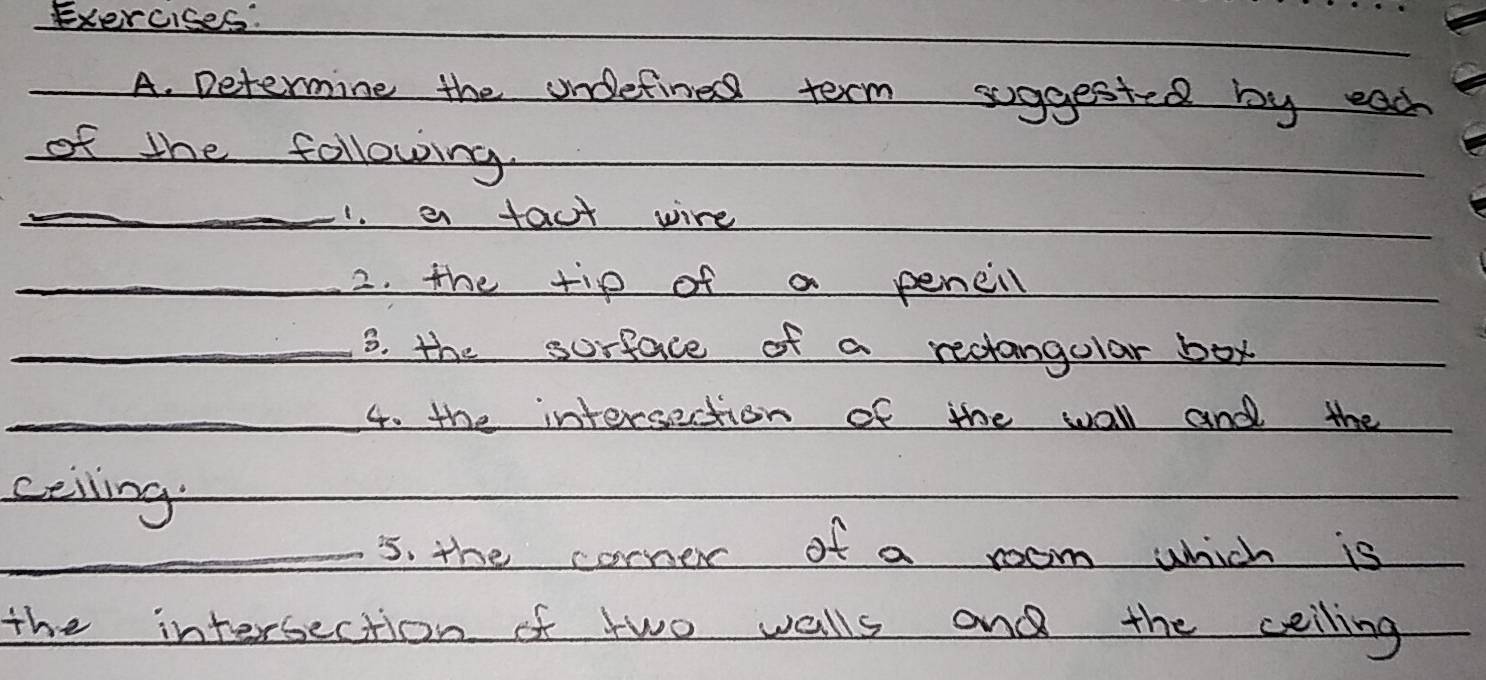 Exercises:
A. Determine the undefined term suggested by each
of the following.
__________1. a taut wire
__________2. the tip of a pencil
__________3. the surface of a rectangular box
__________4. the intersection of the wall and the
ceiling.
__________5. the corner of a room which is
the intersection of two walls and the ceiling